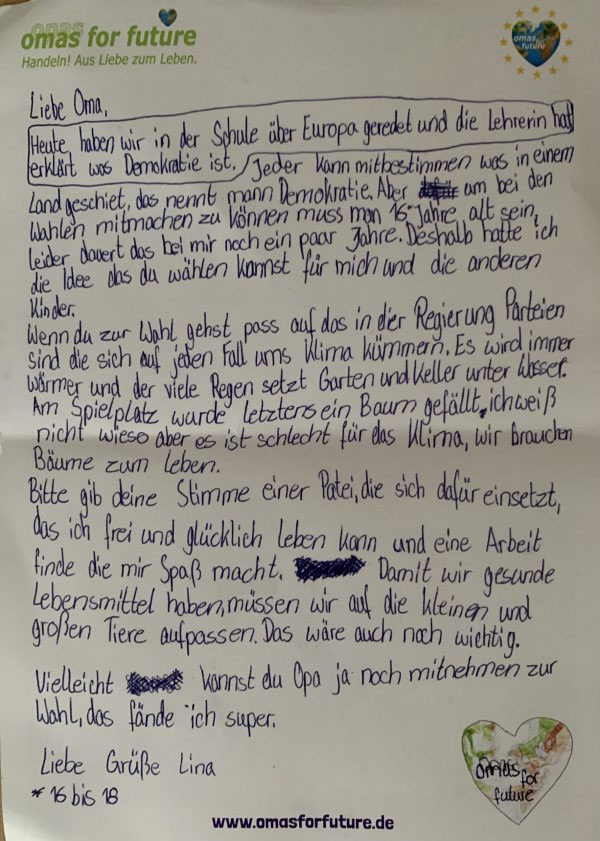 omas for future
Handeln! Aus Liebe zum Leben.
omas for future
Liebe Oma,
Heute, haben wir in der Schule über Europa geredet und die Lehrerin hat
erklärt was Demokratie ist. Jeder kann mitbestimmen was in einem
Land geschiet, das nennt mann Demokratie. Aber um bei den
Wahlen mitmachen zu können muss man 16* Jahre alt sein,
leider dauert das bei mir noch ein paar Jahre. Deshalb hatte ich
die Idee das du wählen kannst für mich und die anderen
Kinder.
Wenn du zur Wahl gehst pass auf das in der Regierung Parteien
sind die sich auf jeden Fall ums Klima kümmern. Es wird immer
wärmer und der viele Regen setzt Garten und Keller unter Wasser.
Am Spielplatz wurde letztens ein Baum gefällt, ich weiß
nicht wieso aber es ist schlecht für das Klima, wir brauchen
Bäume zum leben.
Bitte gib deine Stimme einer Patei, die sich dafür einsetzt,
das ich frei und glücklich leben kann und eine Arbeit
finde die mir Spaß macht. Damit wir gesunde
Lebensmittel haben, müssen wir auf die kleinen und
großen Tiere aufpassen. Das wäre auch noch wichtig.
Vielleicht kannst du Opa ja noch mitnehmen zur
Wahl, das fände ich super.
Liebe Grüße Lina
* 16 bis 18
omas for
future
www.omasforfuture.de